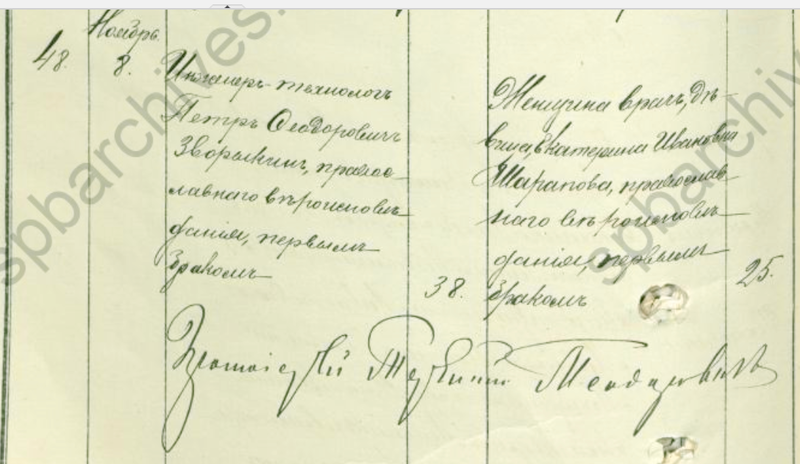 Ноябрь
48.
8.
Инженеръ-технологъ
Петръ Ѳеодоровичъ
Зворыкинъ, правос-
лавнаго вѣроисповѣ-
данія, первымъ
бракомъ
38.
Женщина врачъ, дѣ-
вица, Екатерина Ивановна
Шарапова, православ-
наго вѣроисповѣ-
данія, первымъ
бракомъ
25.
Протоіерей
spbarchives.
spbarchiv